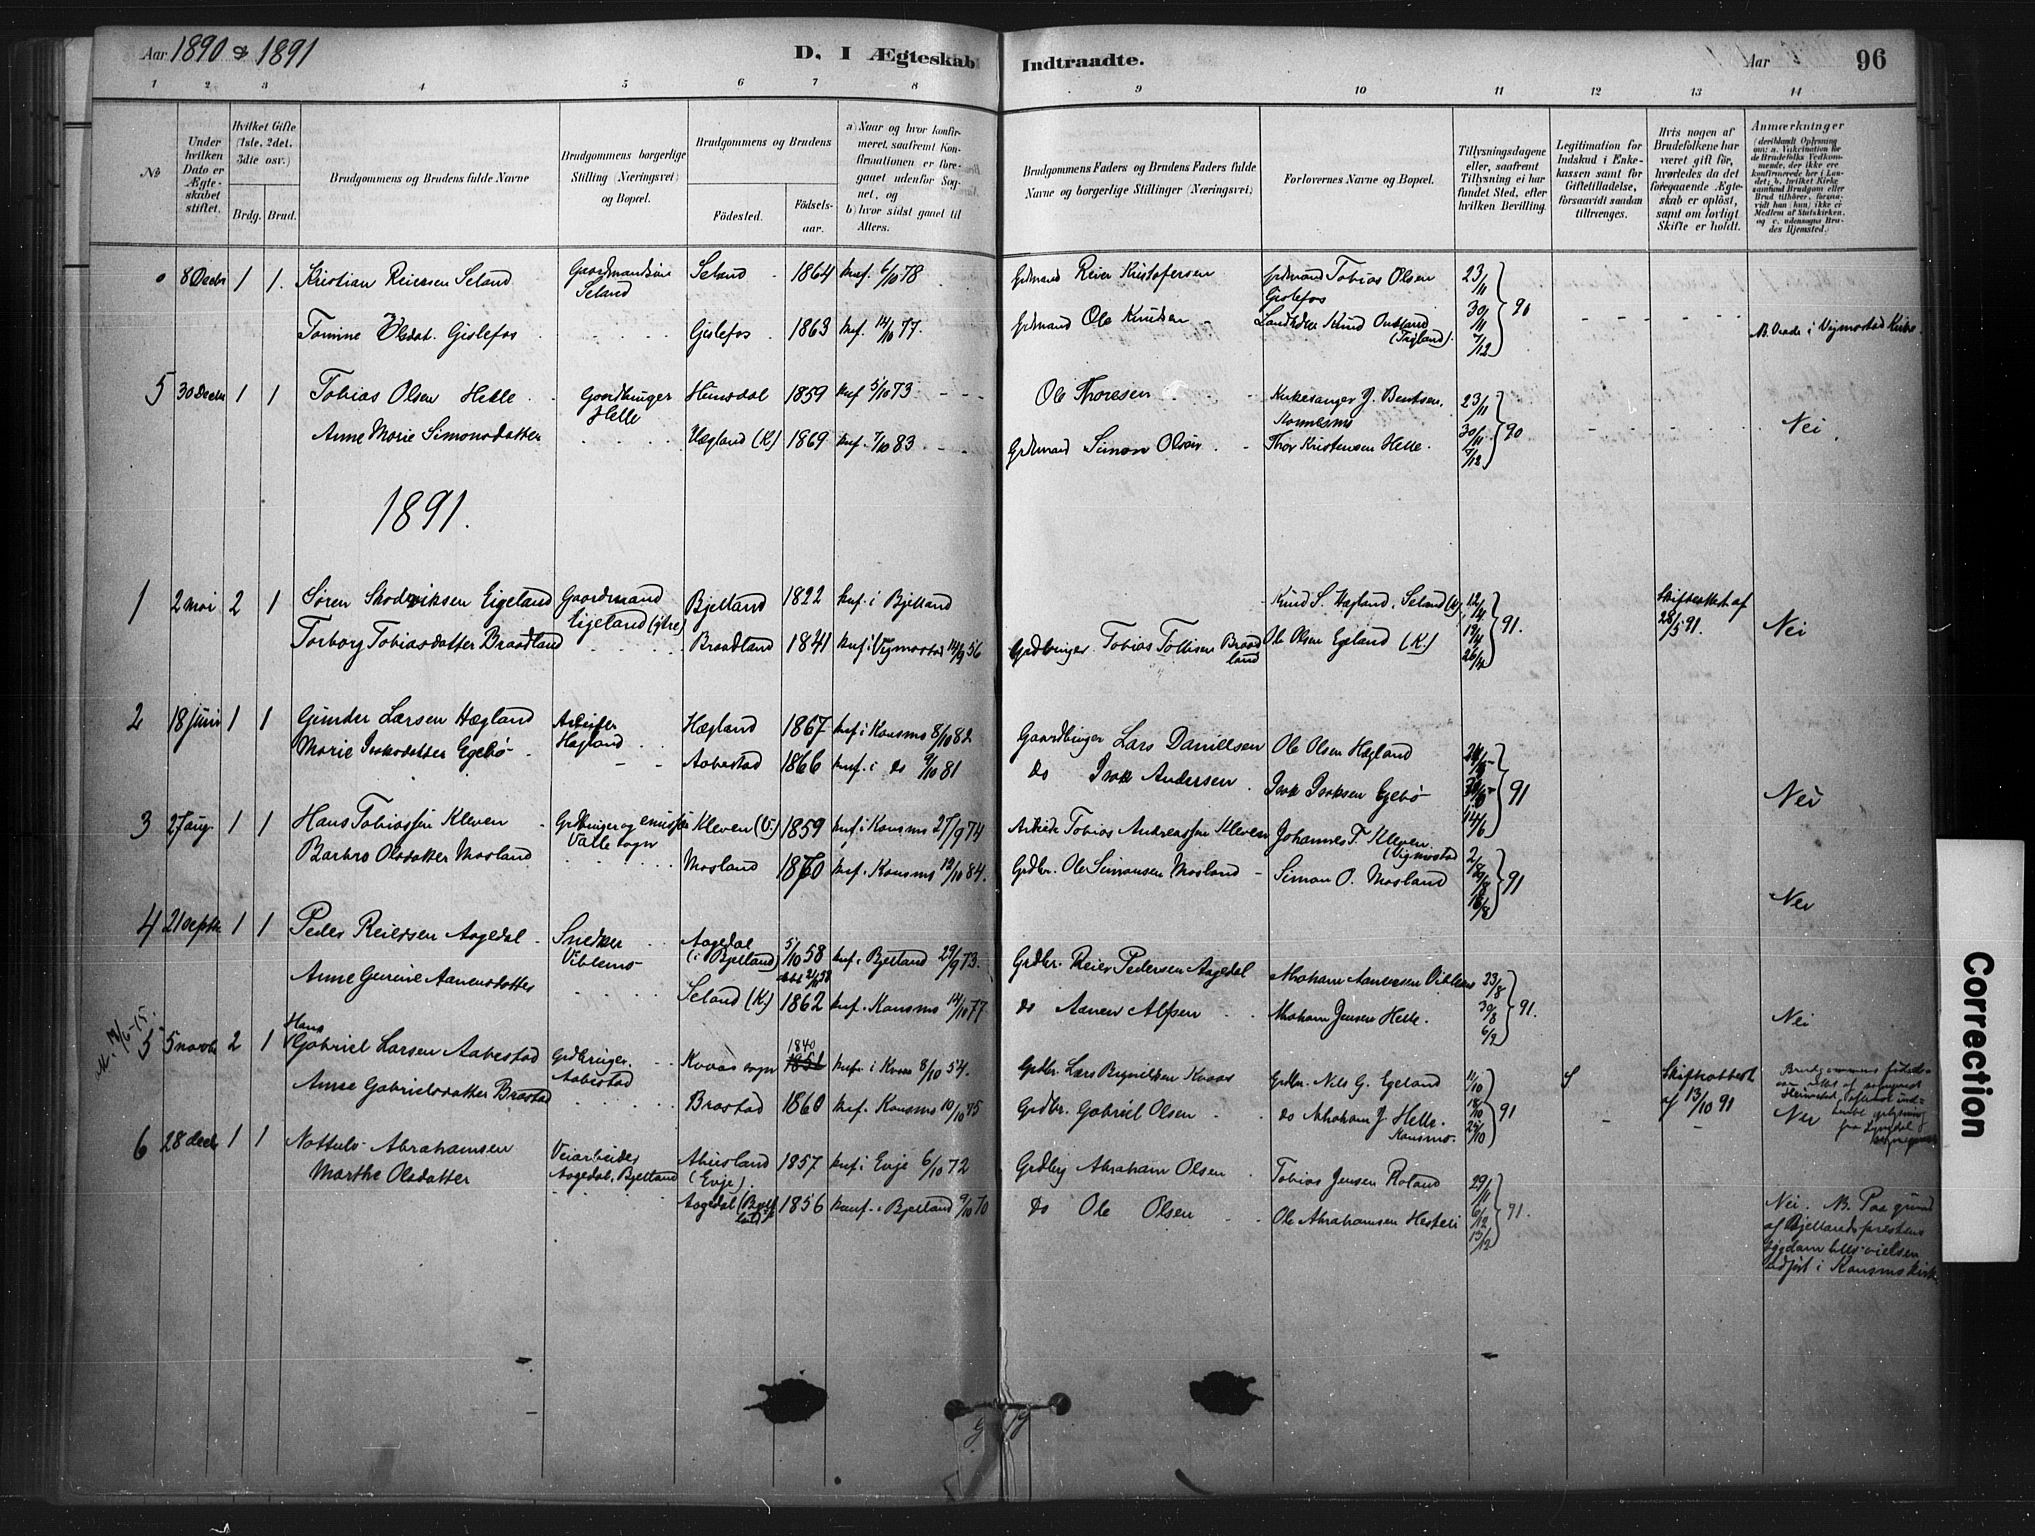 Aar 1890 & 1891
D. I Ægteskab Indtraadte.
Aar
96
1 2 3 4 5 6 7 8 9 10 11 12 13 14
No
Under hvilken Dato er Ægteskabet stiftet.
Hvilket Gifte (1ste, 2det, 3die osv.)
Brdg. Brud.
Brudgommens og Brudens fulde Navne
Brudgommens borgerlige Stilling (Næringsvei) og Bopæl.
Brudgommens og Brudens
Födested.
Födsels-aar.
a) Naar og hvor konfirmeret, saafremt Konfirmationen er foregaaet udenfor Sognet, og
b) hvor sidst gaaet til Alters.
Brudgommens Faders og Brudens Faders fulde Navne og borgerlige Stillinger (Næringsvei)
Forlovernes Navne og Bopæl.
Tillysningsdagene eller, saafremt Tillysning ei har fundet Sted, efter hvilken Bevilling.
Legitimation for Indskud i Enkekassen samt for Giftetilladelse, forsaavidt saadan tiltrænges.
Hvis nogen af Brudefolkene har været gift før, hvorledes da det foregaaende Ægteskab er oplöst, samt om lovligt Skifte er holdt.
Anmærkninger
8 Decbr 1 1. Kristian Reiersen Seland Gaardmandssön Seland Seland 1864 knf. 6/10 78 Grdmand Reier Kristofersen Grdmand Tobias Olsen Gislefos 23/11 30/11 7/12 90
Tomine Olsdat. Gislefos Gislefos 1863 knf. 14/10 77. Grdmand Ole Knudsen NB. Viede i Vigmostad Kirke.
5 30 Decbr 1 1 Tobias Olsen Helle Gaardbruger Helle Heimsdal 1859 knf 5/10 73 Ole Thoresen Kirkesanger J. Bentsen, Konnesmo 23/11 30/11 7/12 90
Anne Marie Simonsdatter Hægland (K) 1869 knf. 7/10 83. Grdmand Simon Olsen Thor Kristensen Helle. Nei
1891.
1 2 mai 2 1 Sören Skodviksen Eigeland Gaardmand Eigeland (ytre) Bjelland 1822 knf. i Bjelland Knud S. Hægland, Seland (K) 12/4 19/4 26/4 91. Skifteattest af 28/5 91. Nei
Torborg Tobiasdatter Braadland Braadland 1841 knf. i Vigmostad 14/9 56 Grdbruger Tobias Tollisen Braadland Ole Olsen Egeland (K.)
2 18 juni 1 1 Gunder Larsen Hægland Arbeider Hægland Hægland 1867 knf. i Konsmo 8/10 82 Gaardbruger Lars Daniellsen Ole Olsen Hægland 91
Marie Isaksdatter Egebö Aabestad 1866 knf. i do 9/10 81 do Isak Andersen Isak Isaksen Egebö Nei
3 27 aug. 1 1 Hans Tobiassen Kleven Valle sogn Kleven (V.) 1859 knf. i Konsmo 27/9 74 Tobias Andreassen Kleven Johannes T. Kleven (Vigmostad) 91
Barbro Olsdatter Mosland Mosland 1870 knf. Konsmo 12/10 84. Grdbr. Ole Simonsen Mosland Simon O. Mosland Nei
4 21 septbr 1 1 Peder Reiersen Aagedal Snedker Viblemo Aagedal (i Bjelland) 5/10 58 knf. Bjelland 29/9 73. Grdbr. Reier Pedersen Aagedal Abraham Aanensen Viblemo 23/8 30/8 6/9 91.
Anne Gurine Aanensdatter Seland (K.) 1862 knf. Konsmo 14/10 77 do Aanen Alfsen Abraham Jensen Helle. Nei
5 5 novbr 2 1 Hans Gabriel Larsen Aabestad Grdbruger Aabestad Kvaas sogn 1840 knf. i Kvaas 8/10 54. Grdbr. Lars Kvaas Grdbr. Nils G. Egeland 11/10 18/10 25/10 91 Skifteattest af 13/10 91
Anne Gabrielsdatter Brastad Brastad 1860 knf. Konsmo 10/10 75 Grdbr. Gabriel Olsen do Abraham J Helle. Konsmo. Nei
6 28 decbr 1 1 Nottulv Abrahamsen Veiarbeider Aagedal, Bjelland Abusland (Evje). 1857 knf i Evje 6/10 72 Grdbrg Abraham Olsen Tobias Jensen Roland 29/11 6/12 13/12 91.
Marthe Olsdatter Aagedal (Bjelland) 1856 konf. i Bjelland 9/10 70 do Ole Olsen Ole Abrahamsen Hesteli
Nei. NB. Paa grund af Bjellands prestens sygdom blev vielsen udført i Konsmo kirke
Correction